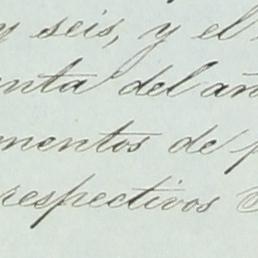 y seis, y el
enta del añ
mentos de p
respectivos